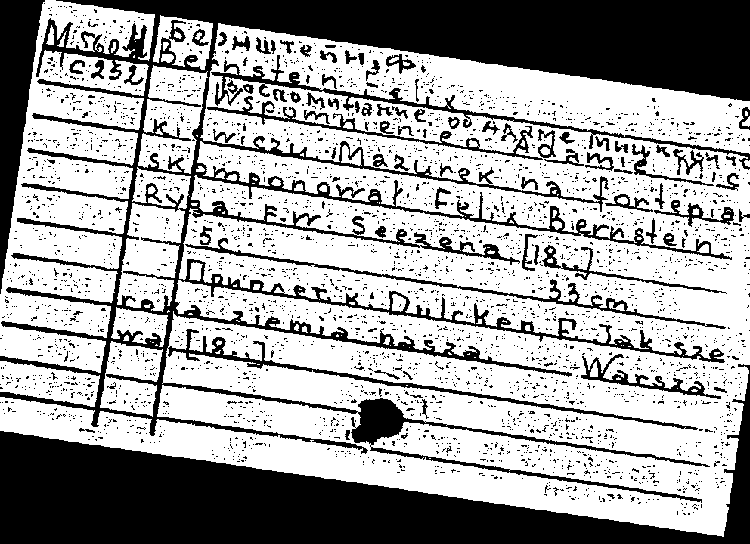 М 560-4 Бернштейн, Ф.
с 252 Bernstein Felix
Воспоминание об Адаме Мицкевиче
Wspomnienie o Adamie Mic
kiewiczu. Mazurek na fortepian
skomponował Felix Bernstein.
Ryga. F.W. Seezena. [18..]
5 с. 33 cm.
Приплет. к: Dulcken, F. Jak sze-
roka ziemia nasza. Warsza-
wa, [18..].